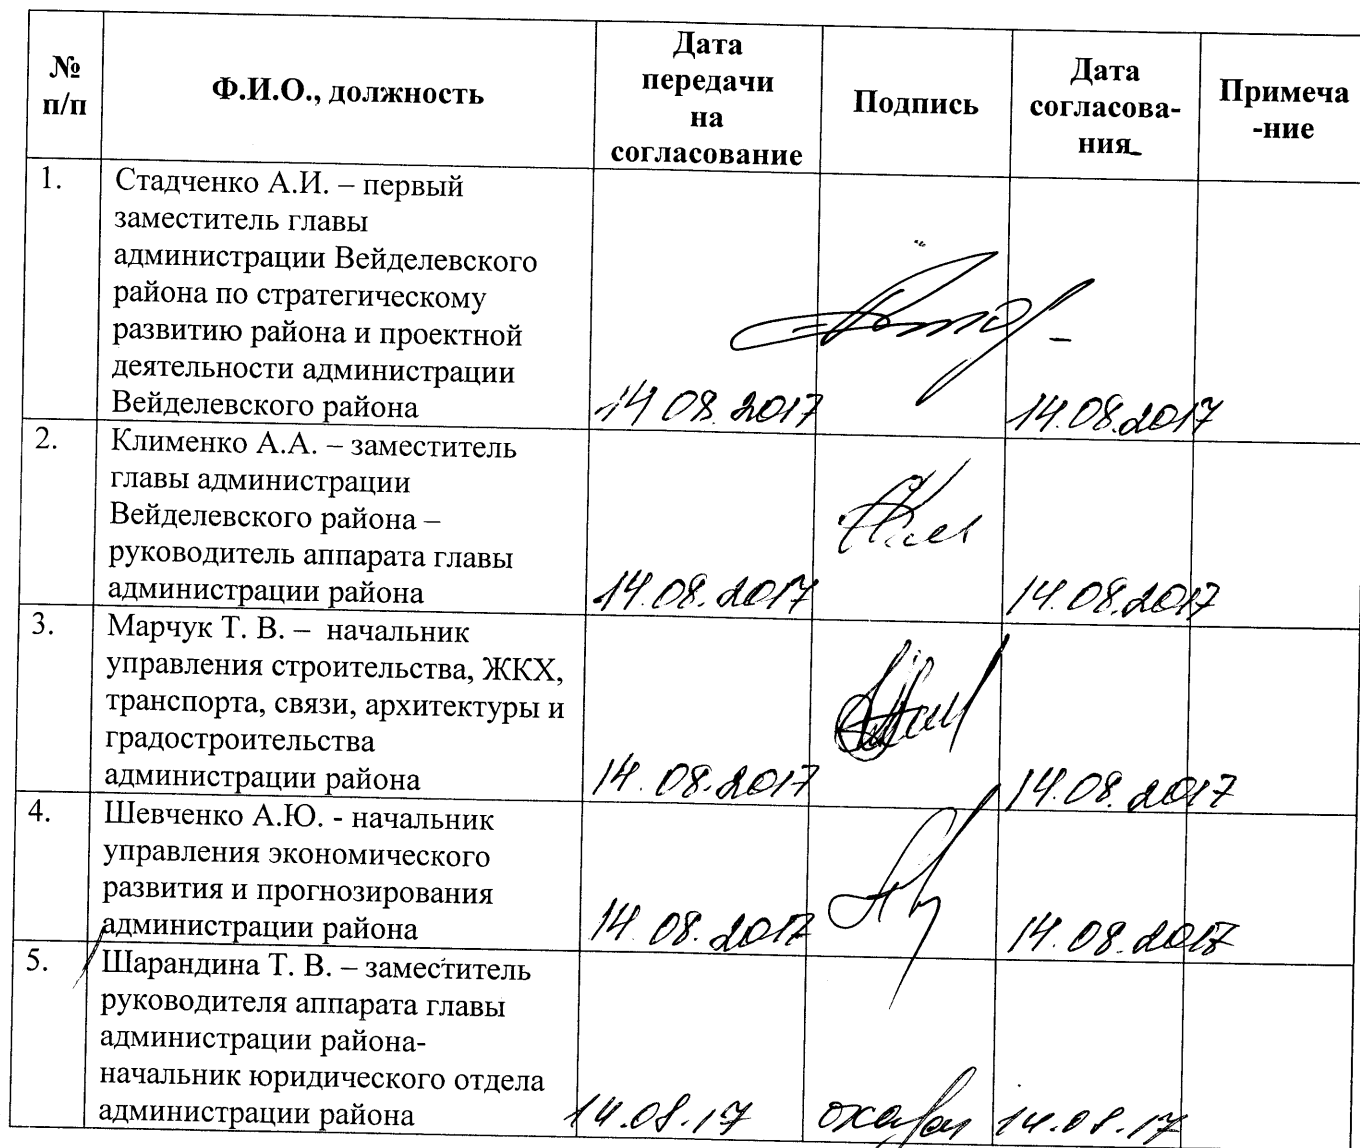 № п/п
Ф.И.О., должность
Дата передачи на согласование
Подпись
Дата согласова-ния
Примеча-ние
1.
Стадченко А.И. – первый
заместитель главы
администрации Вейделевского
района по стратегическому
развитию района и проектной
деятельности администрации
Вейделевского района
14 08 2017
14.08.2017
2.
Клименко А.А. – заместитель
главы администрации
Вейделевского района –
руководитель аппарата главы
администрации района
14.08.2017
14.08.2017
3.
Марчук Т. В. – начальник
управления строительства, ЖКХ,
транспорта, связи, архитектуры и
градостроительства
администрации района
14.08.2017
14.08.2017
4.
Шевченко А.Ю. - начальник
управления экономического
развития и прогнозирования
администрации района
14.08.2017
14.08.2017
5.
Шарандина Т. В. – заместитель
руководителя аппарата главы
администрации района-
начальник юридического отдела
администрации района
14.08.17
14.08.17